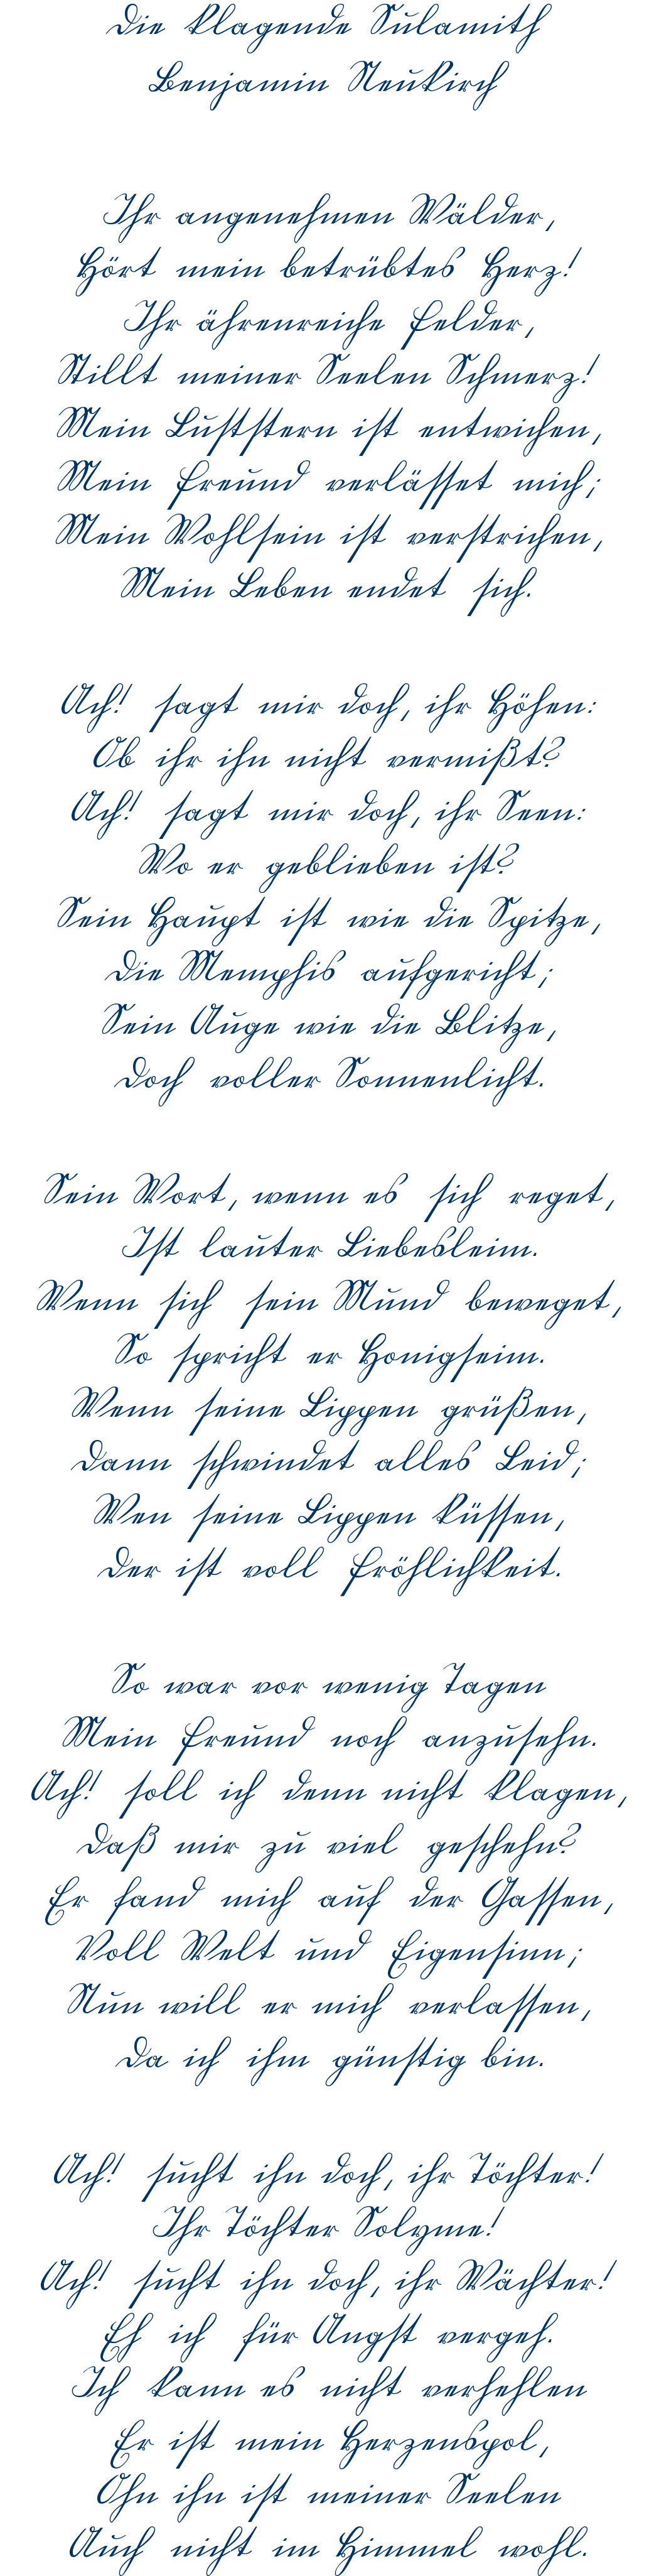 Die klagende Sulamith
Benjamin Neukirch
Ihr angenehmen Wälder,
Hört mein betrübtes Herz!
Ihr ährenreiche Felder,
Stillt meiner Seelen Schmerz!
Mein Luststern ist entwichen,
Mein Freund verlässet mich;
Mein Wohlsein ist verstrichen,
Mein Leben endet sich.
Ach! sagt mir doch, ihr Höhen:
Ob ihr ihn nicht vermißt?
Ach! sagt mir doch, ihr Seen:
Wo er geblieben ist?
Sein Haupt ist wie die Spitze,
Die Memphis aufgericht;
Sein Auge wie die Blitze,
Doch voller Sonnenlicht.
Sein Wort, wenn es sich reget,
Ist lauter Liebesleim.
Wenn sich sein Mund beweget,
So spricht er Honigseim.
Wenn seine Lippen grüßen,
Dann schwindet alles Leid;
Wen seine Lippen küssen,
Der ist voll Fröhlichkeit.
So war vor wenig Tagen
Mein Freund noch anzusehn.
Ach! soll ich denn nicht klagen,
Daß mir zu viel geschehn?
Er fand mich auf der Gassen,
Voll Welt und Eigensinn;
Nun will er mich verlassen,
Da ich ihm günstig bin.
Ach! sucht ihn doch, ihr Töchter!
Ihr Töchter Solyme!
Ach! sucht ihn doch, ihr Wächter!
Eh ich für Angst vergeh.
Ich kann es nicht verhehlen
Er ist mein Herzenspol,
Ohn ihn ist meiner Seelen
Auch nicht im Himmel wohl.